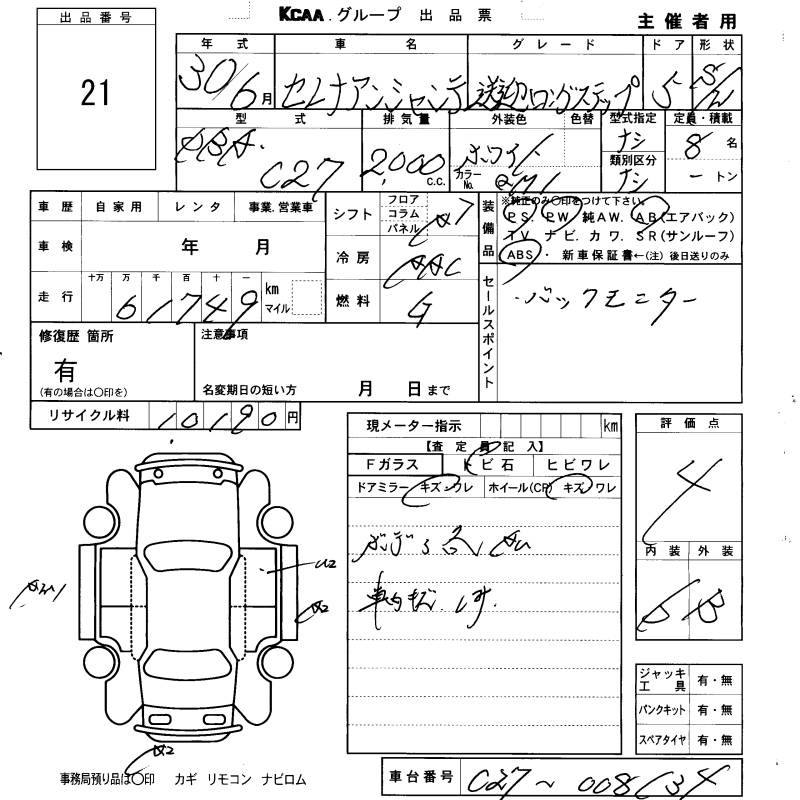 KCAA.グループ 出品票
主催者用
出品番号
21
年式 車名 グレード ドア 形状
30/6月 セレナアンシャンテ 送迎ロングステップ 5 S/W
型式 排気量 外装色 色替 型式指定 定員・積載
DBA. C27 2,000 C.C. ホワイト カラーNo. ナシ 8名
類別区分 ナシ ートン
車歴 自家用 レンタ 事業.営業車
シフト フロア コラム パネル AT
装備品 ※純正のみ〇印をつけて下さい。
PS. PW. 純AW. AB(エアバック)
TV. ナビ. カワ. SR(サンルーフ)
ABS ・ 新車保証書←(注) 後日送りのみ
車検 年 月
冷房 AAC
走行 十万 万 千 百 十 一 km マイル
61749
燃料 G
セールスポイント
・バックモニター
修復歴 箇所
有
(有の場合は〇印を)
注意事項
名変期日の短い方 月 日まで
リサイクル料 10190円
現メーター指示 km
【査定員記入】
Fガラス トビ石 ヒビワレ
ドアミラー キズ・ワレ ホイール(CP) キズ ワレ
車内キズ
評価点
4
内装 外装
B
A2
A2
A2
ジャッキ工具 有・無
パンクキット 有・無
スペアタイヤ 有・無
事務局預り品は〇印 カギ リモコン ナビロム
車台番号 C27～008634